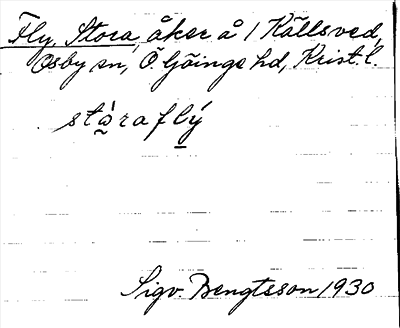 Fly, Stora, åker å 1 Källsved,
Osby sn, Ö Göinge hd, Krist. l.
stòraflý
Sigv. Bengtsson 1930